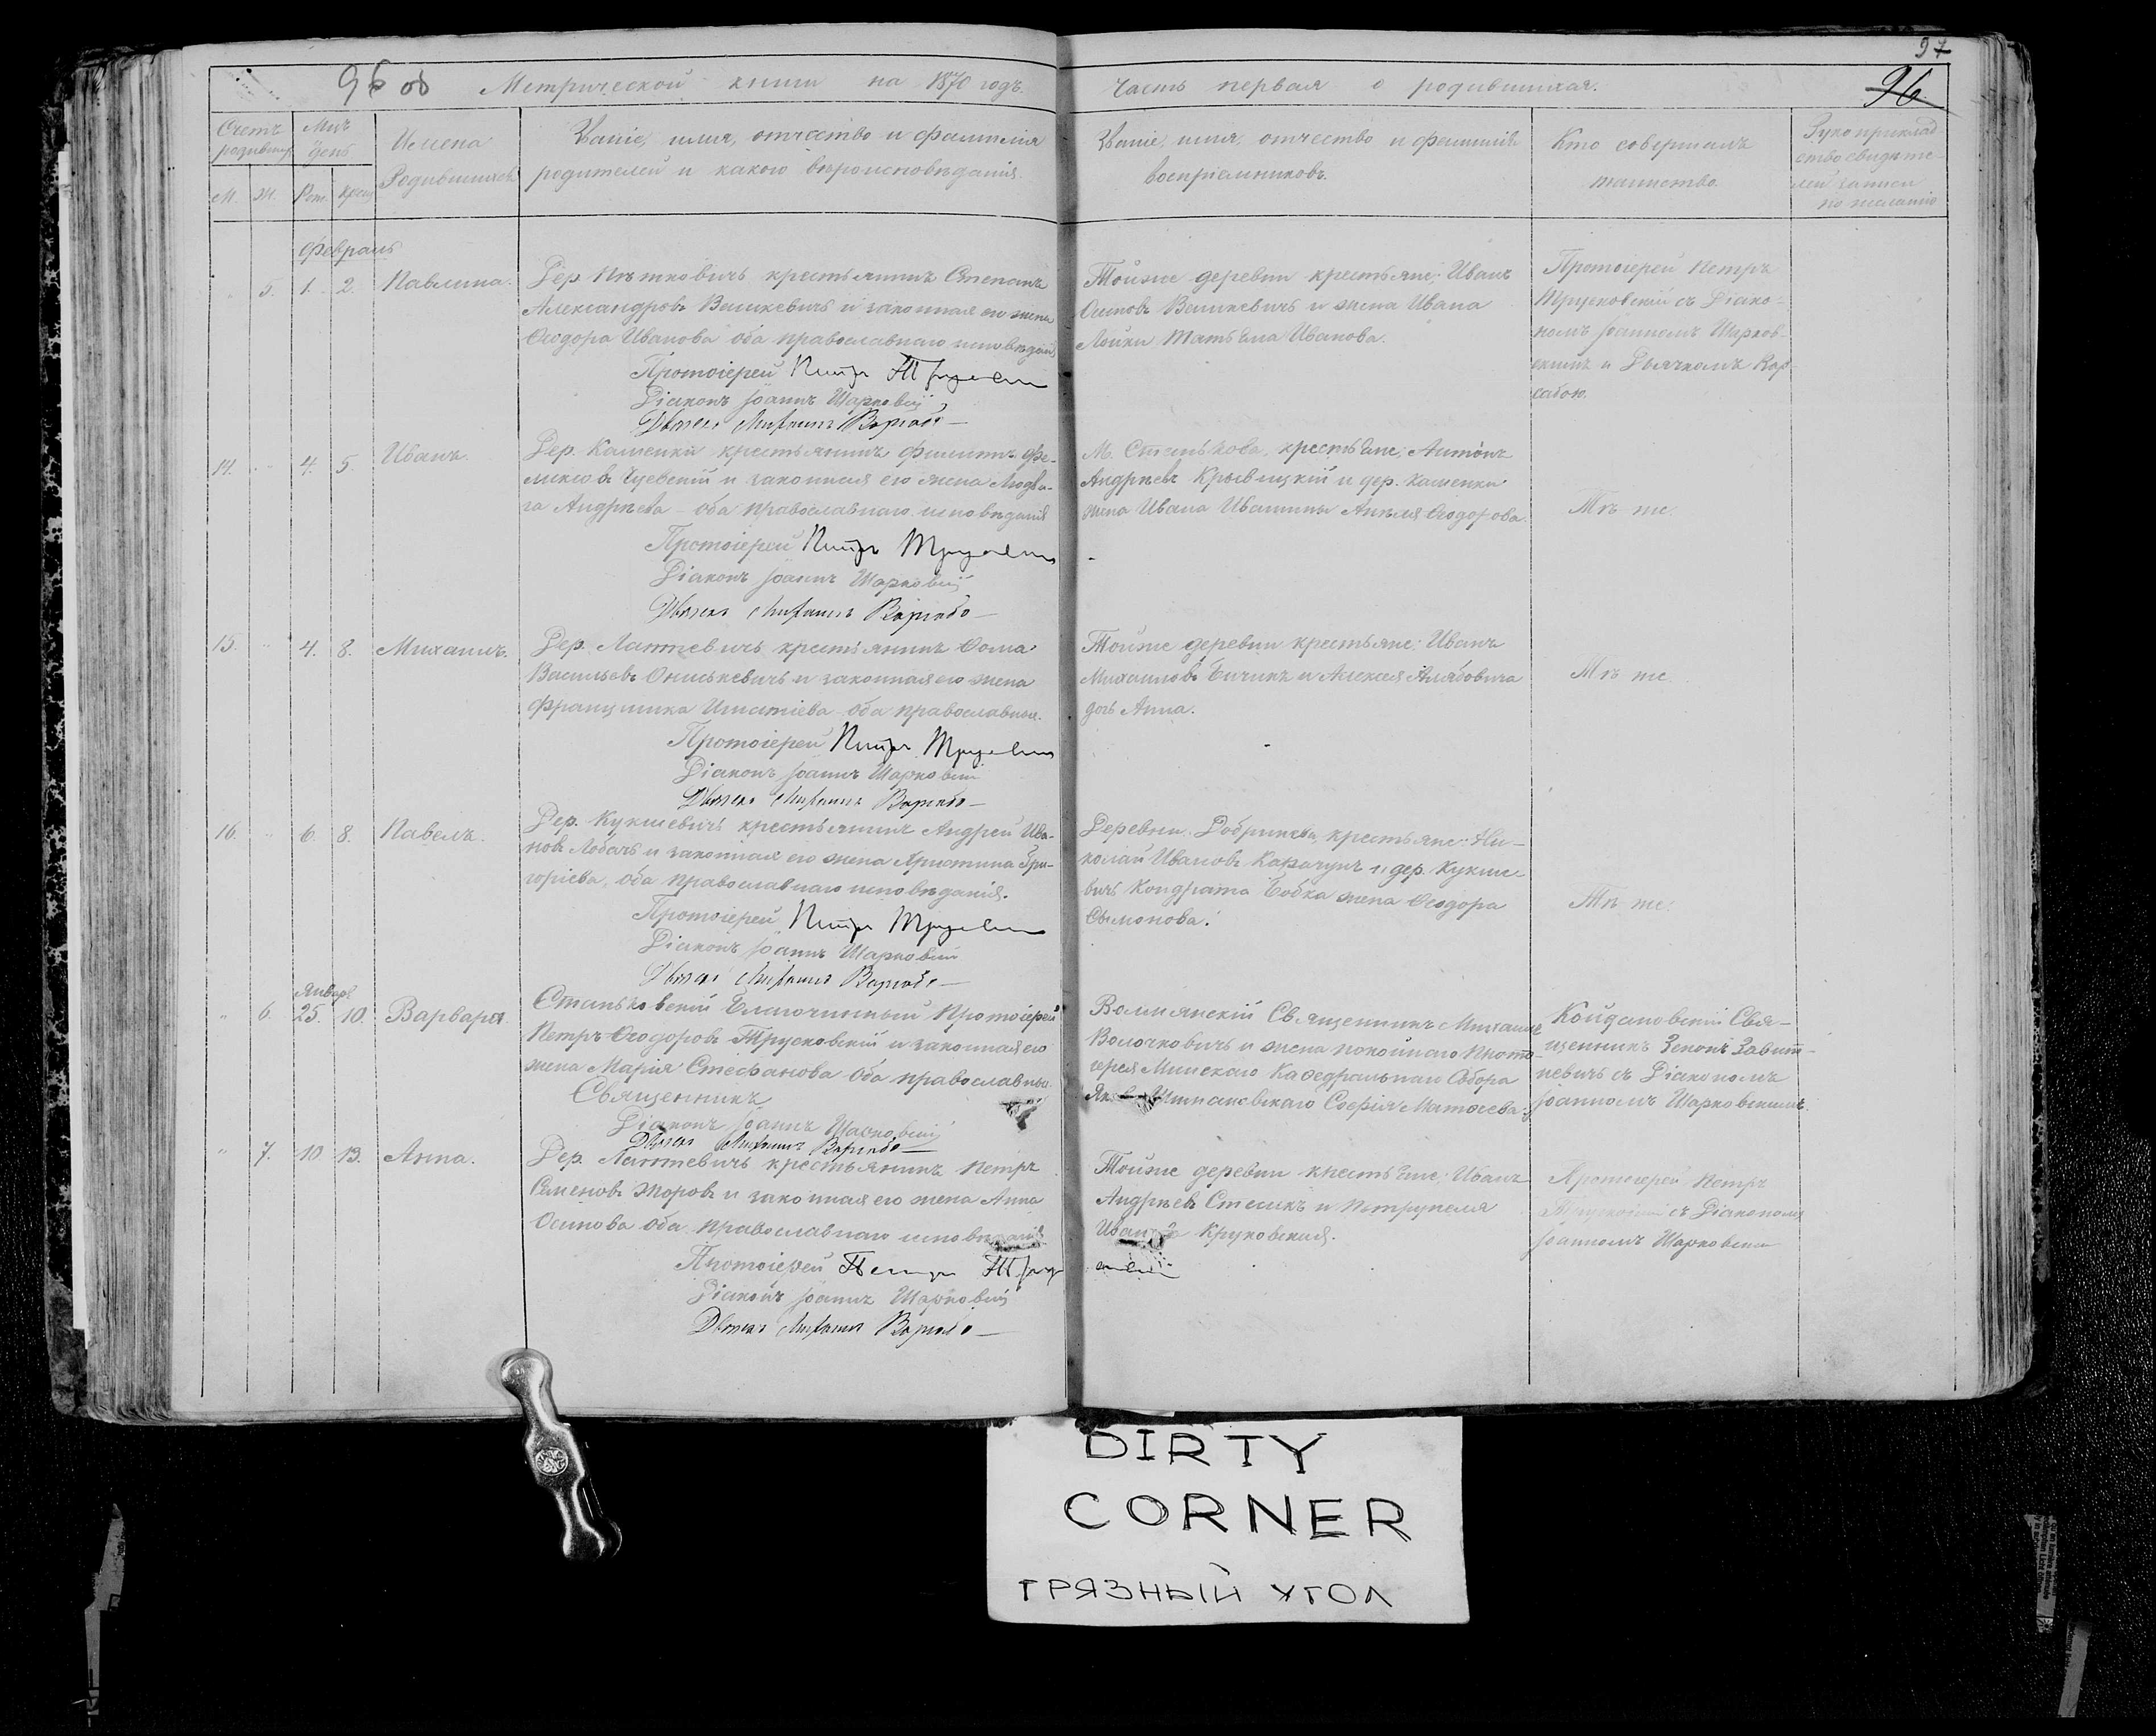 97
96 об Метрической книги на 1870 годъ. Часть первая о родившихся. 96
Счетъ родивших.
Мцъ день
Имена Родившихся
Званіе, имя, отчество и фамилія
родителей и какого вѣроисповѣданія.
Званіе, имя, отчество и фамилія
воспріемниковъ.
Кто совершалъ
таинство.
Рукоприклад
ство свидѣте-
лей записи
по желанію
М. Ж. Рож. Крещ.
Февраль
5. 1. 2. Павлина.
Дер. Пѣтковичь крестьянинъ Степанъ
Александровъ Вашкевичъ и законная его жена
Ѳеодора Иванова оба православнаго исповѣдан.
Протоіерей Петръ
Діаконъ Іоаннъ Шарковскій
Дьячекъ Михаилъ
Тойже деревни крестьяне: Иванъ
Осиповъ Вашкевичъ и жена Ивана
Татьяна Иванова.
Протоіерей Петръ
Трусковскій съ Діако-
номъ Іоанномъ Шарков-
скимъ и Дьячкомъ
14. 4. 5. Иванъ.
Дер. Кашенки крестьянинъ Филиппъ Фе-
ликсовъ и законная его жена Людви-
га Андрѣева оба православнаго исповѣданія
Протоіерей Петръ
Діаконъ Іоаннъ Шарковскій
Дьячекъ Михаилъ
М. Станькова, крестьяне: Антонъ
Андрѣевъ Крывицкій и дер. Кашенки
жена Ивана Ѳеодорова.
Тѣ же.
15. 4. 8. Михаилъ.
Дер. Лаптевичь крестьянинъ Ѳома
Васильевъ Ониськевичъ и законная его жена
Францишка Игнатіева оба православные.
Протоіерей Петръ
Діаконъ Іоаннъ Шарковскій
Дьячекъ Михаилъ
Тойже деревни крестьяне: Иванъ
Михаиловъ Бичикъ и Алексея
дочь Анна.
Тѣ же.
16. 6. 8. Павелъ.
Дер. Кукшевичь крестьянинъ Андрей Ива-
новъ Лобачъ и законная его жена Христина Гри-
горіева, оба православнаго исповѣданія.
Протоіерей Петръ
Діаконъ Іоаннъ Шарковскій
Дьячекъ Михаилъ
Деревни Добринева, крестьяне: Ни-
колай Ивановъ Карачунъ и дер. Кукше-
вичь Кондрата Бобка жена Ѳеодора
Сымонова.
Тѣ же.
Январь
6. 25. 10. Варвара.
Станьковскій Благочинный Протоіерей
Петръ Ѳеодоровъ Трусковскій и законная его
жена Марія Стефанова оба православные.
Священникъ
Діаконъ Іоаннъ Шарковскій
Дьячекъ Михаилъ
Волмянскій Священникъ Михаилъ
Волочковичъ и жена покойнаго Прото-
іерея Минскаго Каѳедральнаго Собора
Софія Матѳеева.
Койдановскій Свя-
щенникъ Зенонъ
съ Діакономъ
Іоанномъ Шарковскимъ.
7. 10 13. Анна.
Дер. Лаптевичь крестьянинъ Петръ
Семеновъ Жоровъ и законная его жена Анна
Осипова оба православнаго исповѣданія
Протоіерей Петръ
Діаконъ Іоаннъ Шарковскій
Дьячекъ Михаилъ
Тойже деревни крестьяне: Иванъ
Андрѣевъ Стасикъ и Петрунеля
Круковская.
Протоіерей Петръ
Трусковскій съ Діакономъ
Іоанномъ Шарковским
DIRTY
CORNER
ГРЯЗНЫЙ УГОЛ